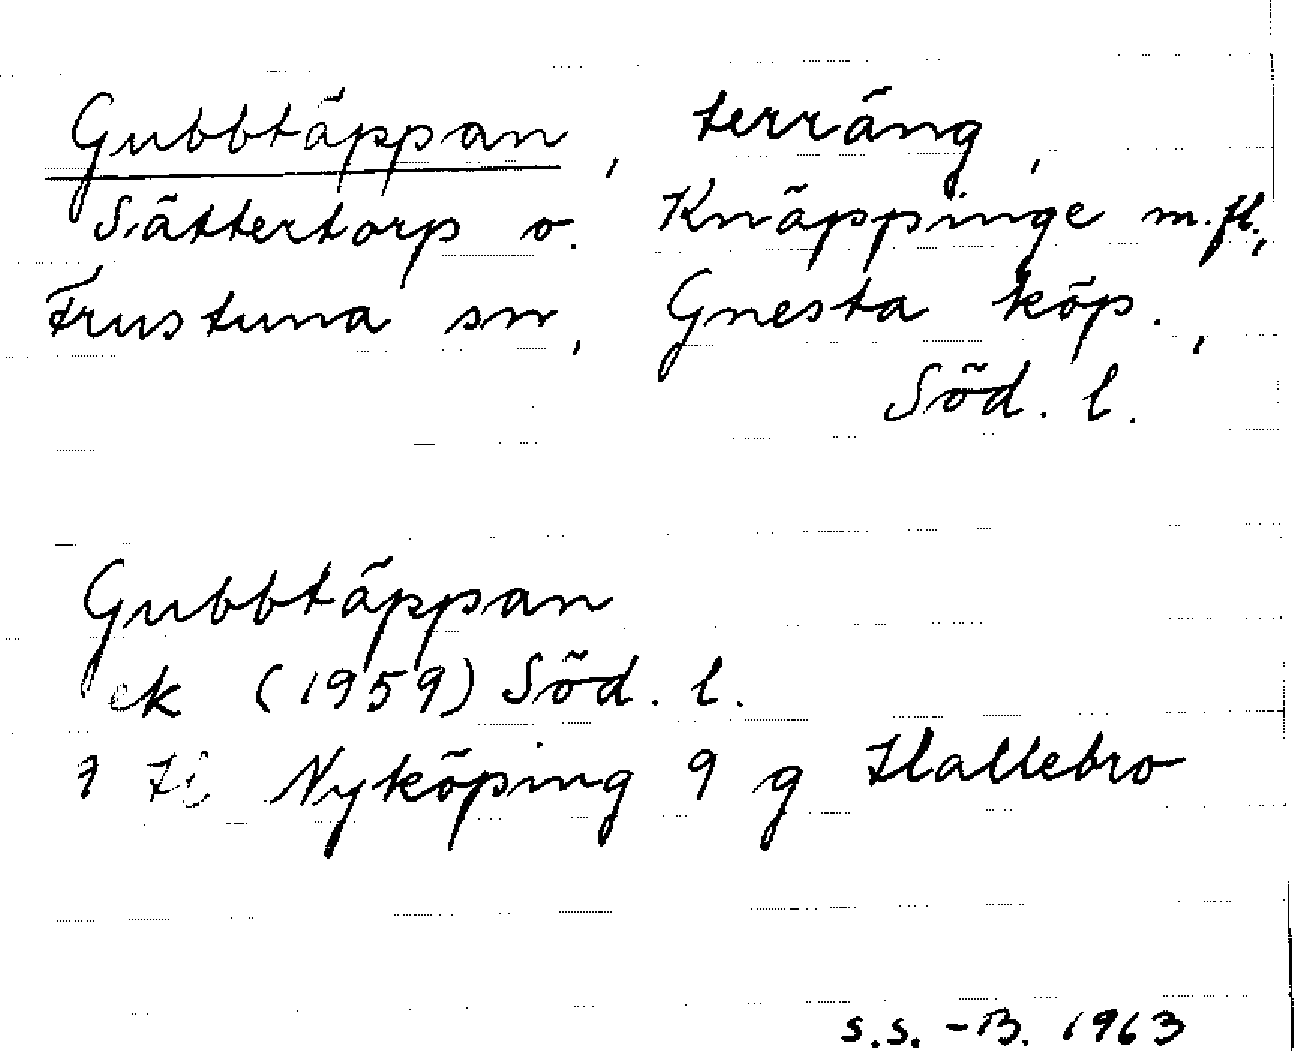 Gubbtäppan, terräng,
Sättertorp o. Knäppinge m.fl.,
Frustuna sn, Gnesta köp.,
Söd. l.
Gubbtäppan
ek (1959) Söd. l.
Nyköping 9 g Hallebro
S.S. -B. 1963